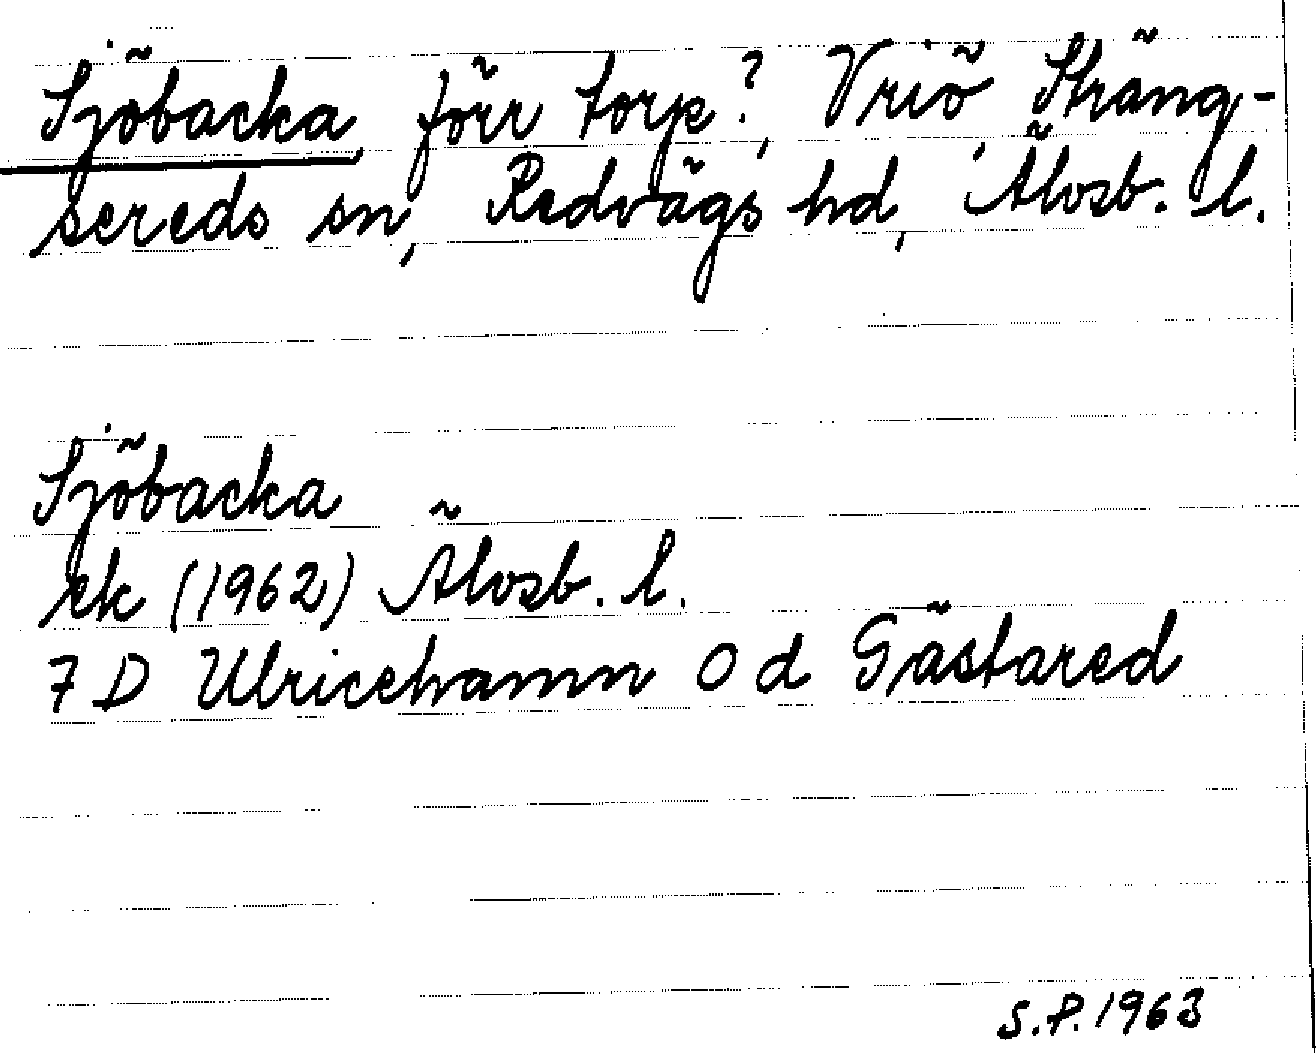 Sjöbacka, förr torp?, Vriö, Sträng-
sereds sn, Redvägs hd, Älvsb. l.
Sjöbacka
ek (1962) Älvsb. l.
7 D Ulricehamn 0 d Gästared
S.P. 1963